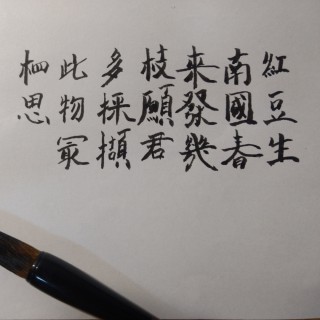 紅豆生
南國春
來發幾
枝願君
多採擷
此物冣
相思